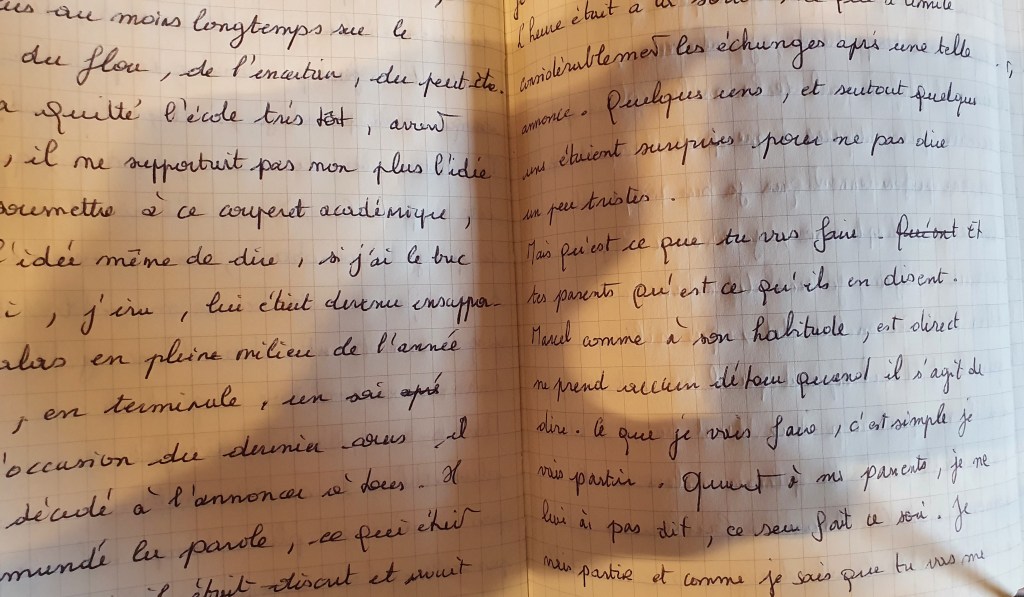 au moins longtemps sur le
du flou, de l'incertain, du peut-être.
a quitté l'école très tôt, avant
, il ne supportait pas non plus l'idée
soumettre à ce couperet académique,
l'idée même de dire, si j'ai le bac
i, j'irai, lui était devenu insuppor-
alors en pleine milieu de l'année
, en terminale, un soi après
l'occasion du dernier cours, il
décidé à l'annoncer à tous. Il
mandé la parole, ce qui était
il était discret et avait
L'heure était à la
considérablement les échanges après une telle
annonce. Quelques uns, et surtout quelques
unes étaient surpris, pour ne pas dire
un peu tristes.
Mais qu'est ce que tu vas faire. Qu'ont Et
tes parents Qu'est ce qu'ils en disent.
Marcel comme à son habitude, est direct
ne prend aucun détour quand il s'agit de
dire. Ce que je vais faire, c'est simple je
vais partir. Quant à mes parents, je ne
lui ai pas dit, ce sera fait ce soir. Je
vais partir et comme je sais que tu vas me